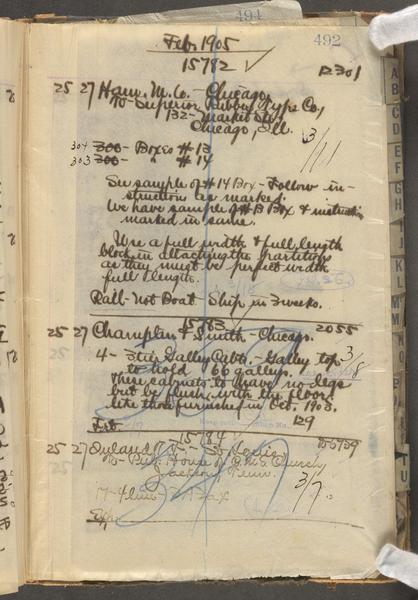 491
Feb. 1905
492
15782 ✓
12301
25 27 Ham. M. Co. - Chicago,
To - Superior Rubber Type Co.,
132 - Market St.,
Chicago, Ill.
3/11
304 300 - Boxes #13
303 300 - " #14
See sample of #14 Box - Follow in-
structions as marked.
We have sample of #13 Box & instructions
marked in same.
Use a full width & full length
block in attaching the partitions
as they must be perfect width
full length.
Rail - Not Boat - Ship in 3 weeks.
15783
25 27 Champlin & Smith - Chicago. 2055
4 - 3 tier Galley Cabts. - Galley top
to hold 66 galleys.
3/8
These cabinets to have no legs
but be flush with the floor
like those furnished in Oct. 1903.
129
Frt.
15784
25 27 Inland T. F. - St. Louis,
To - Pub. House of C. M. E. Church,
Jackson, Tenn.
3/7
Exp.
A
B
C
D
E
F
G
H
I
J
K
L
M
N
O
P
T
U
W